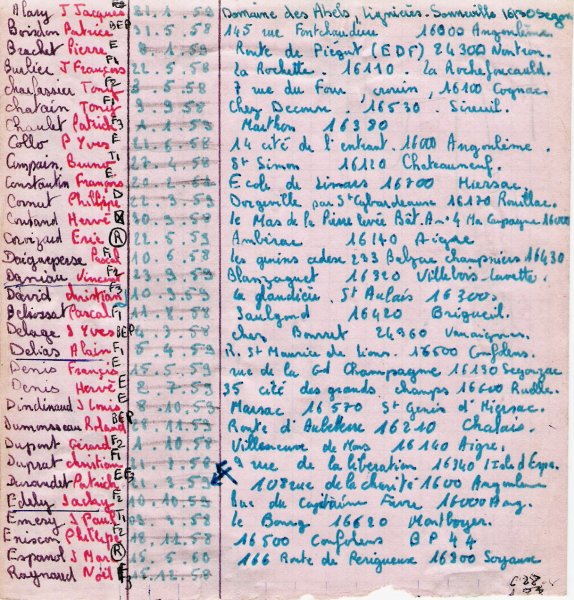 Alary J Jacques 21.1.58 Domaine des Abels, Lignières. Sonneville 16130 Segon
Boisdon Patrice BEP 58 145 rue Fontchaudière 16000 Angoulême
Brachet Pierre E 9.58 Route de Piégut (EDF) 24300 Nontron.
Burlier J François F1 22.5.58 la Rochette. 16110 La Rochefoucauld.
Tony F2 3.5.58 7 rue du Four, crouin, 16100 Cognac.
chatain Tony F1 9.9.58 Chez Decoux. 16530. Sireuil.
Chaulet Patrick F3 1.1.59 Marthon 16380
Collo P Yves E 21.6.58 14 cité de l'entrant. 16000 Angoulême.
Compain Bruno T1 27.4.58 St Simon 16120 Chateauneuf.
Constantin François E 20.2.58 Ecole de Linars 16700 Hiersac.
Cornet Philippe D 22.3.59 par St Cybardeaux 16170 Rouillac.
Coutand Hervé 30. .58 le Mas de la Pierre levée Bât. A. 4 Ma Campagne 16000
Corvizaud Eric R 22.5.59 Ambérac 16140 Aigre
Daigueperse Pascal F1 10.6.58 les 233 Balzac champniers 16430
Daniau Vincent F2 23.9.59 Blanzaguet 16320 Villebois-Lavette.
David christian F3 10.3.59 la glaudière. St Aulais 16300
Pascal F1 11.8.58 Saulgond 16420 Brigueil.
Delage J Yves BEP 4.3.58 chez Bonnet 24360
Delias Alain F1 5.4.59 R. St Maurice de Lions. 16500 Confolens.
Denis Francis E 15.5.59 rue de la Gd Champagne 16130 Segonzac
Denis Hervé E 2.7.59 35 cité des grands champs 16600 Ruelle.
Dindinaud J Louis E 8.10.59 Marsac 16570 St Genis d'Hiersac.
Dumousseau Roland BEP 28.11.59 Route d'Aubeterre 16210 Chalais.
Dupont Gérard F2 1.10.58 Villeneuve de Mons 16140 Aigre.
Duprat christian F1 21.7.58 9 rue de la liberation 16340 Isle d'Espa.
Durandet Patrick E3 21.3.59 108 rue de la charité 1600 Angoulême
Eddy Jacky F2 10.10.59 Rue du Capitaine Favre 16000 Ang.
Emery J Paul T1 03.9.58 le Bourg 16620 Montboyer.
Eriscon Philippe F2 18.12.58 16500 Confolens BP 44
Espanol J Marc R 15.5.60 166 Route de Périgueux 16800 Soyaux
Raynaud Noël F3 15.12.58